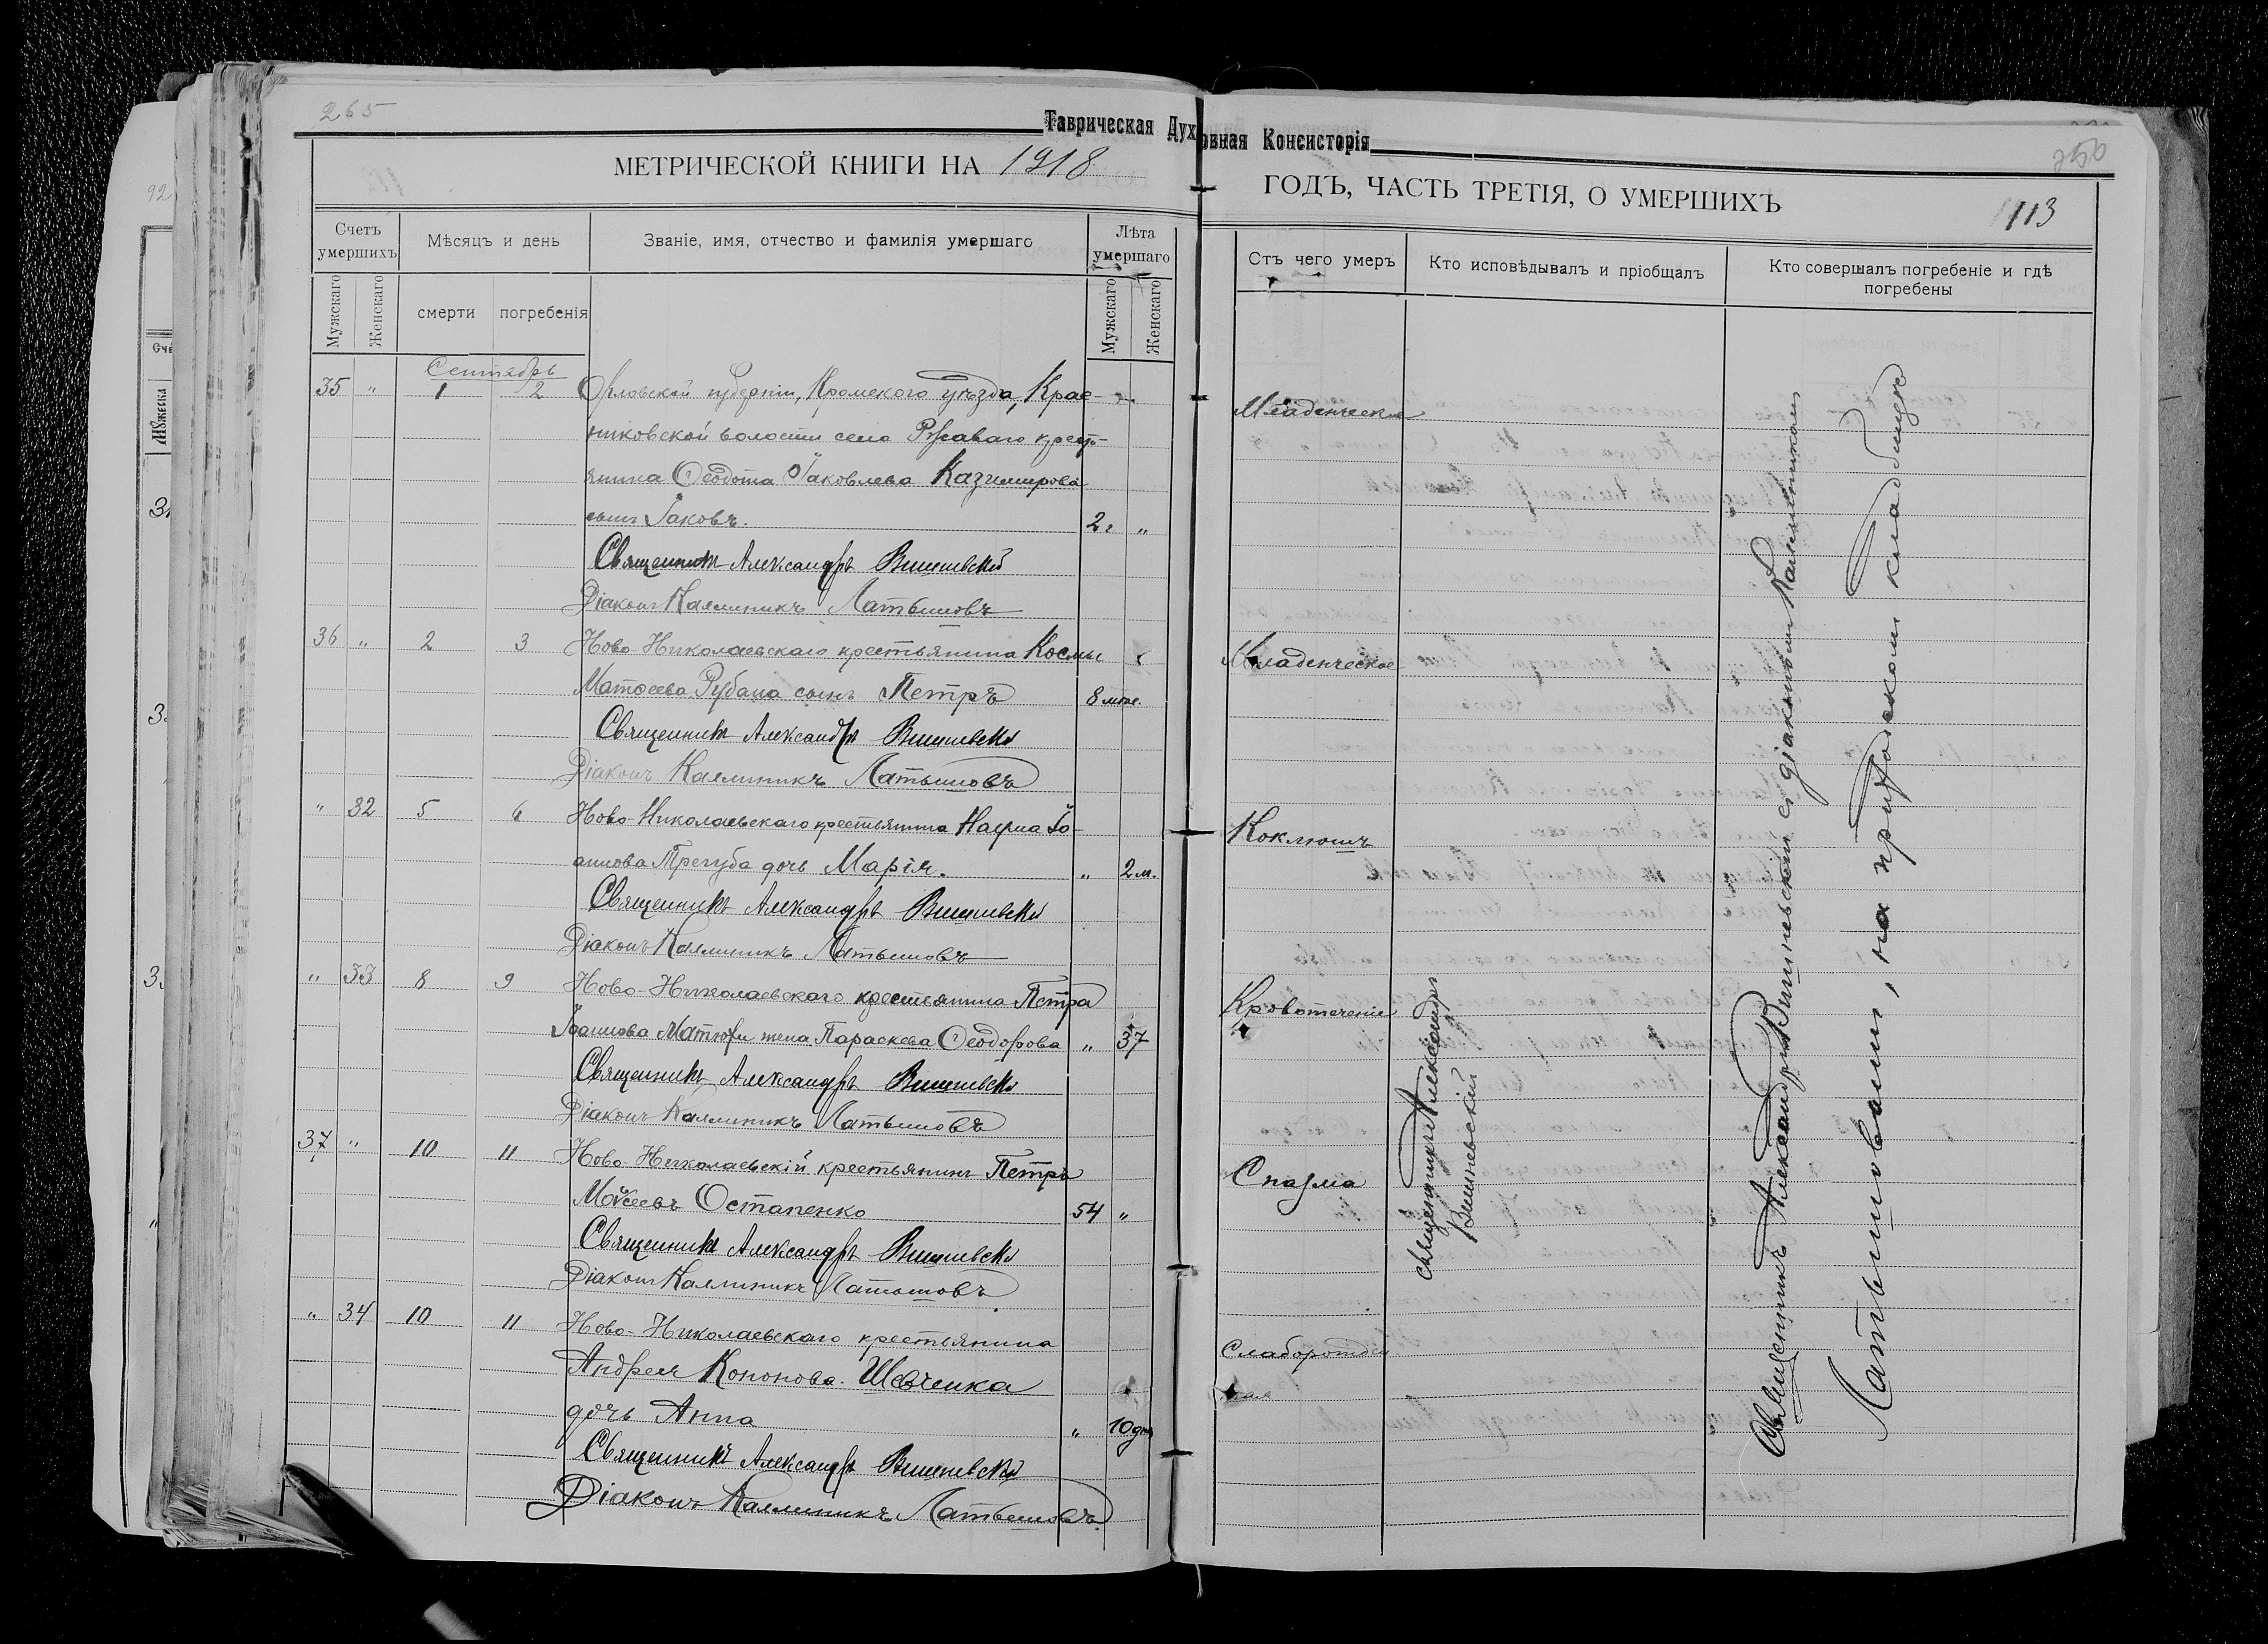 265
Таврическая Духовная Консисторія
250
МЕТРИЧЕСКОЙ КНИГИ НА 1918
ГОДЪ, ЧАСТЬ ТРЕТІЯ, О УМЕРШИХЪ
113
Счетъ умершихъ
Мѣсяцъ и день
Званіе, имя, отчество и фамилія умершаго
Лѣта умершаго
Мужскаго
Женскаго
смерти
погребенія
Мужскаго
Женскаго
Отъ чего умеръ
Кто исповѣдывалъ и пріобщалъ
Кто совершалъ погребеніе и гдѣ погребены
Сентябрь
35 " 1 2 Орловской губерніи, Кромскаго уѣзда, Крас-
никовской волости села Ржаваго крест-
янина Ѳеодота Іаковлева Казимирова
сынъ Іаковъ. 2 г "
Младенческое
Священникъ Александръ Вишневскій
Діаконъ Каллиникъ Латышовъ
36 " 2 3 Ново-Николаевскаго крестьянина Космы
Матѳеева Рубана сынъ Петръ 8 мѣс.
Младенческое
Священникъ Александръ Вишневскій
Діаконъ Каллиникъ Латышовъ
" 32 5 6 Ново-Николаевскаго крестьянина Наума Іо-
аннова Трегуба дочь Марія. " 2 м.
Коклюшъ
Священникъ Александръ Вишневскій
Діаконъ Каллиникъ Латышовъ
" 33 8 9 Ново-Николаевскаго крестьянина Петра
Іоаннова жена Параскева Ѳеодорова " 37
Кровотеченіе
Священникъ Александръ Вишневскій
Діаконъ Каллиникъ Латышовъ
37 " 10 11 Ново-Николаевскій крестьянинъ Петръ
Моѵсеевъ Остапенко 54 "
Спазма
Священникъ Александръ Вишневскій
Діаконъ Каллиникъ Латышовъ
" 34 10 11 Ново-Николаевскаго крестьянина
Андрея Кононова Шевченка
дочь Анна " 10 дн
Слаборожден
ная
Священникъ Александръ Вишневскій
Діаконъ Каллиникъ Латышовъ
Священникъ Александръ
Вишневскій
Священникъ Александръ Вишневскій съ діакономъ Каллиникомъ
Латышовымъ, на приходскомъ кладбищѣ